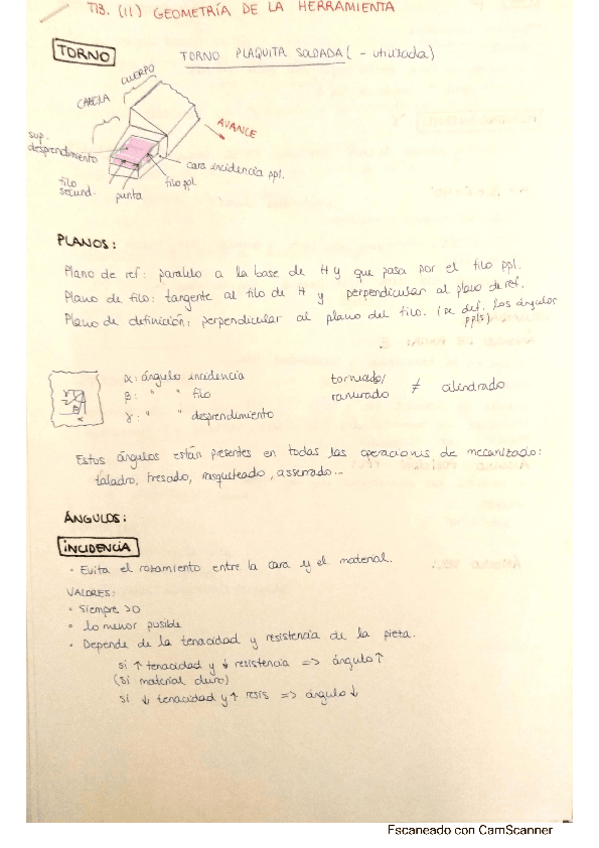 T13. (11) GEOMETRÍA DE LA HERRAMIENTA
TORNO
TORNO PLAQUITA SOLDADA (- utilizada)
CUERPO
CABEZA
AVANCE
sup. desprendimiento
cara incidencia ppl.
filo secund.
punta
filo ppl.
PLANOS:
Plano de ref: paralelo a la base de H y que pasa por el filo ppl.
Plano de filo: tangente al filo de H y perpendicular al plano de ref.
Plano de definición: perpendicular al plano del filo. (se def. los ángulos ppls)
α: ángulo incidencia
β: " " filo
γ: " " desprendimiento
torneado/ ranurado ≠ cilindrado
Estos ángulos están presentes en todas las operaciones de mecanizado:
taladro, fresado, rasqueteado, aserrado...
ÁNGULOS:
INCIDENCIA
• Evita el rozamiento entre la cara y el material.
VALORES:
• Siempre >0
• lo menor posible
• Depende de la tenacidad y resistencia de la pieza.
si ↑ tenacidad y ↓ resistencia => ángulo ↑
(si material duro)
si ↓ tenacidad y ↑ resis => ángulo ↓
Escaneado con CamScanner